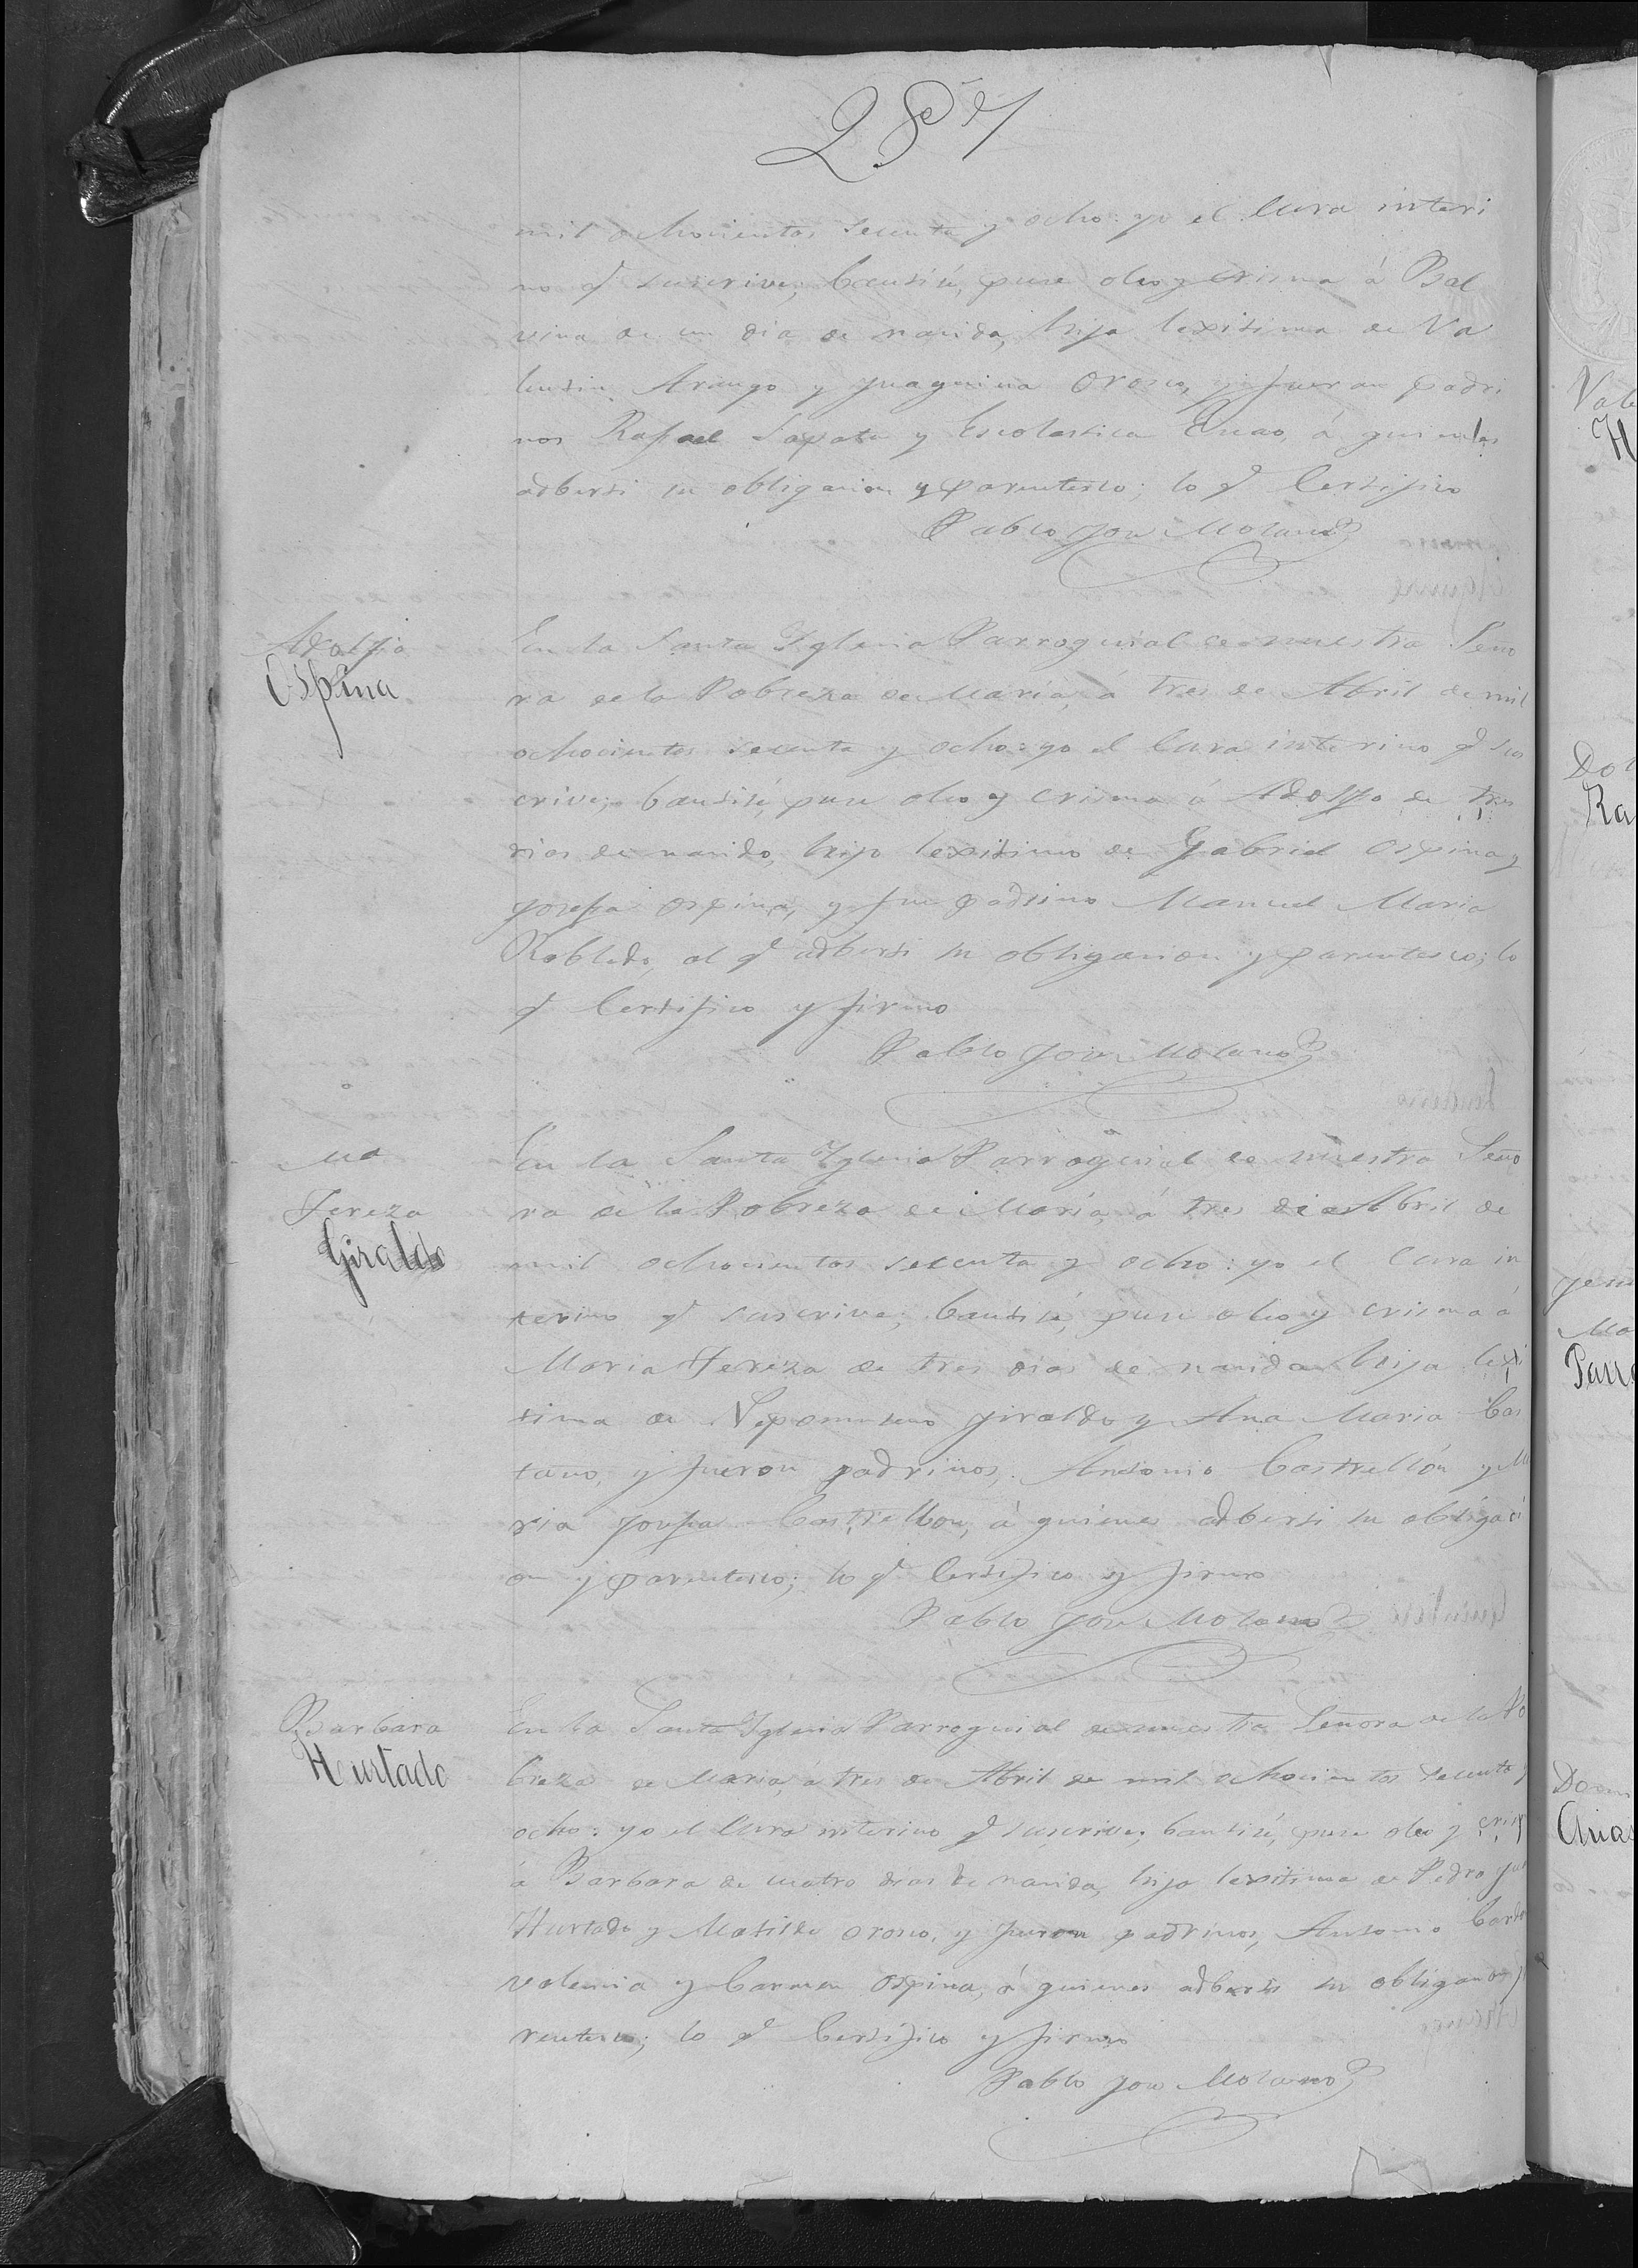 287
mil ochocientos secenta y ocho: yo el Cura interi
no q.e suscrive; bautisé, puse oleo y crisma á Bal
vina de un dia de nacida, hija lexitima de Va
lentin Arango y Juaquina Orosco, y fueron padri
nos Rafael Sapata y Escolastica Enao, á quienes
adberti su obligacion y parentesco; lo q.e Certifico
Pablo José Molano
Adolfo
Ospina
En la Santa Yglecia Parroquial de nuestra Seño
ra de la Pobreza de Maria, á tres de Abril de mil
ochocientos secenta y ocho: yo el Cura interino q.e sus
crive; bautisé, puse oleo y crisma á Adolfo de tres
dias de nacido, hijo lexitimo de Gabriel Ospina y
Josefa Ospina, y fue padrino Manuel Maria
Robledo, al q.e adberti su obligacion y parentesco; lo
q.e Certifico y firmo
Pablo José Molano
Ma
Tereza
Giraldo
En la Santa Yglecia Parroquial de nuestra Seño
ra de la Pobreza de Maria, á tres de Abril de
mil ochocientos secenta y ocho: yo el Cura in
terino q.e suscrive; bautisé, puse oleo y crisma á
Maria Tereza de tres dias de nacida hija lexi
tima de Nepomuseno Giraldo y Ana Maria Cas
taño, y fueron padrinos, Antonio Castrellón y Ma
ria Josefa Castrellon, á quienes adberti su obligaci
on y parentesco; lo q.e Certifico y firmo
Pablo José Molano
Barbara
Hurtado
En la Santa Yglecia Parroquial de nuestra Señora de la Po
breza de Maria, á tres de Abril de mil ochocientos secenta y
ocho: yo el Cura interino q.e suscrive; bautisé, puse oleo y crisma
á Barbara de cuatro dias de nacida, hija lexitima de Pedro
Hurtado y Matilde Orosco, y fueron padrinos, Antonio
valencia y Carmen Ospina, á quienes adberti su obligacion y
rentesco; lo q.e Certifico y firmo
Pablo José Molano